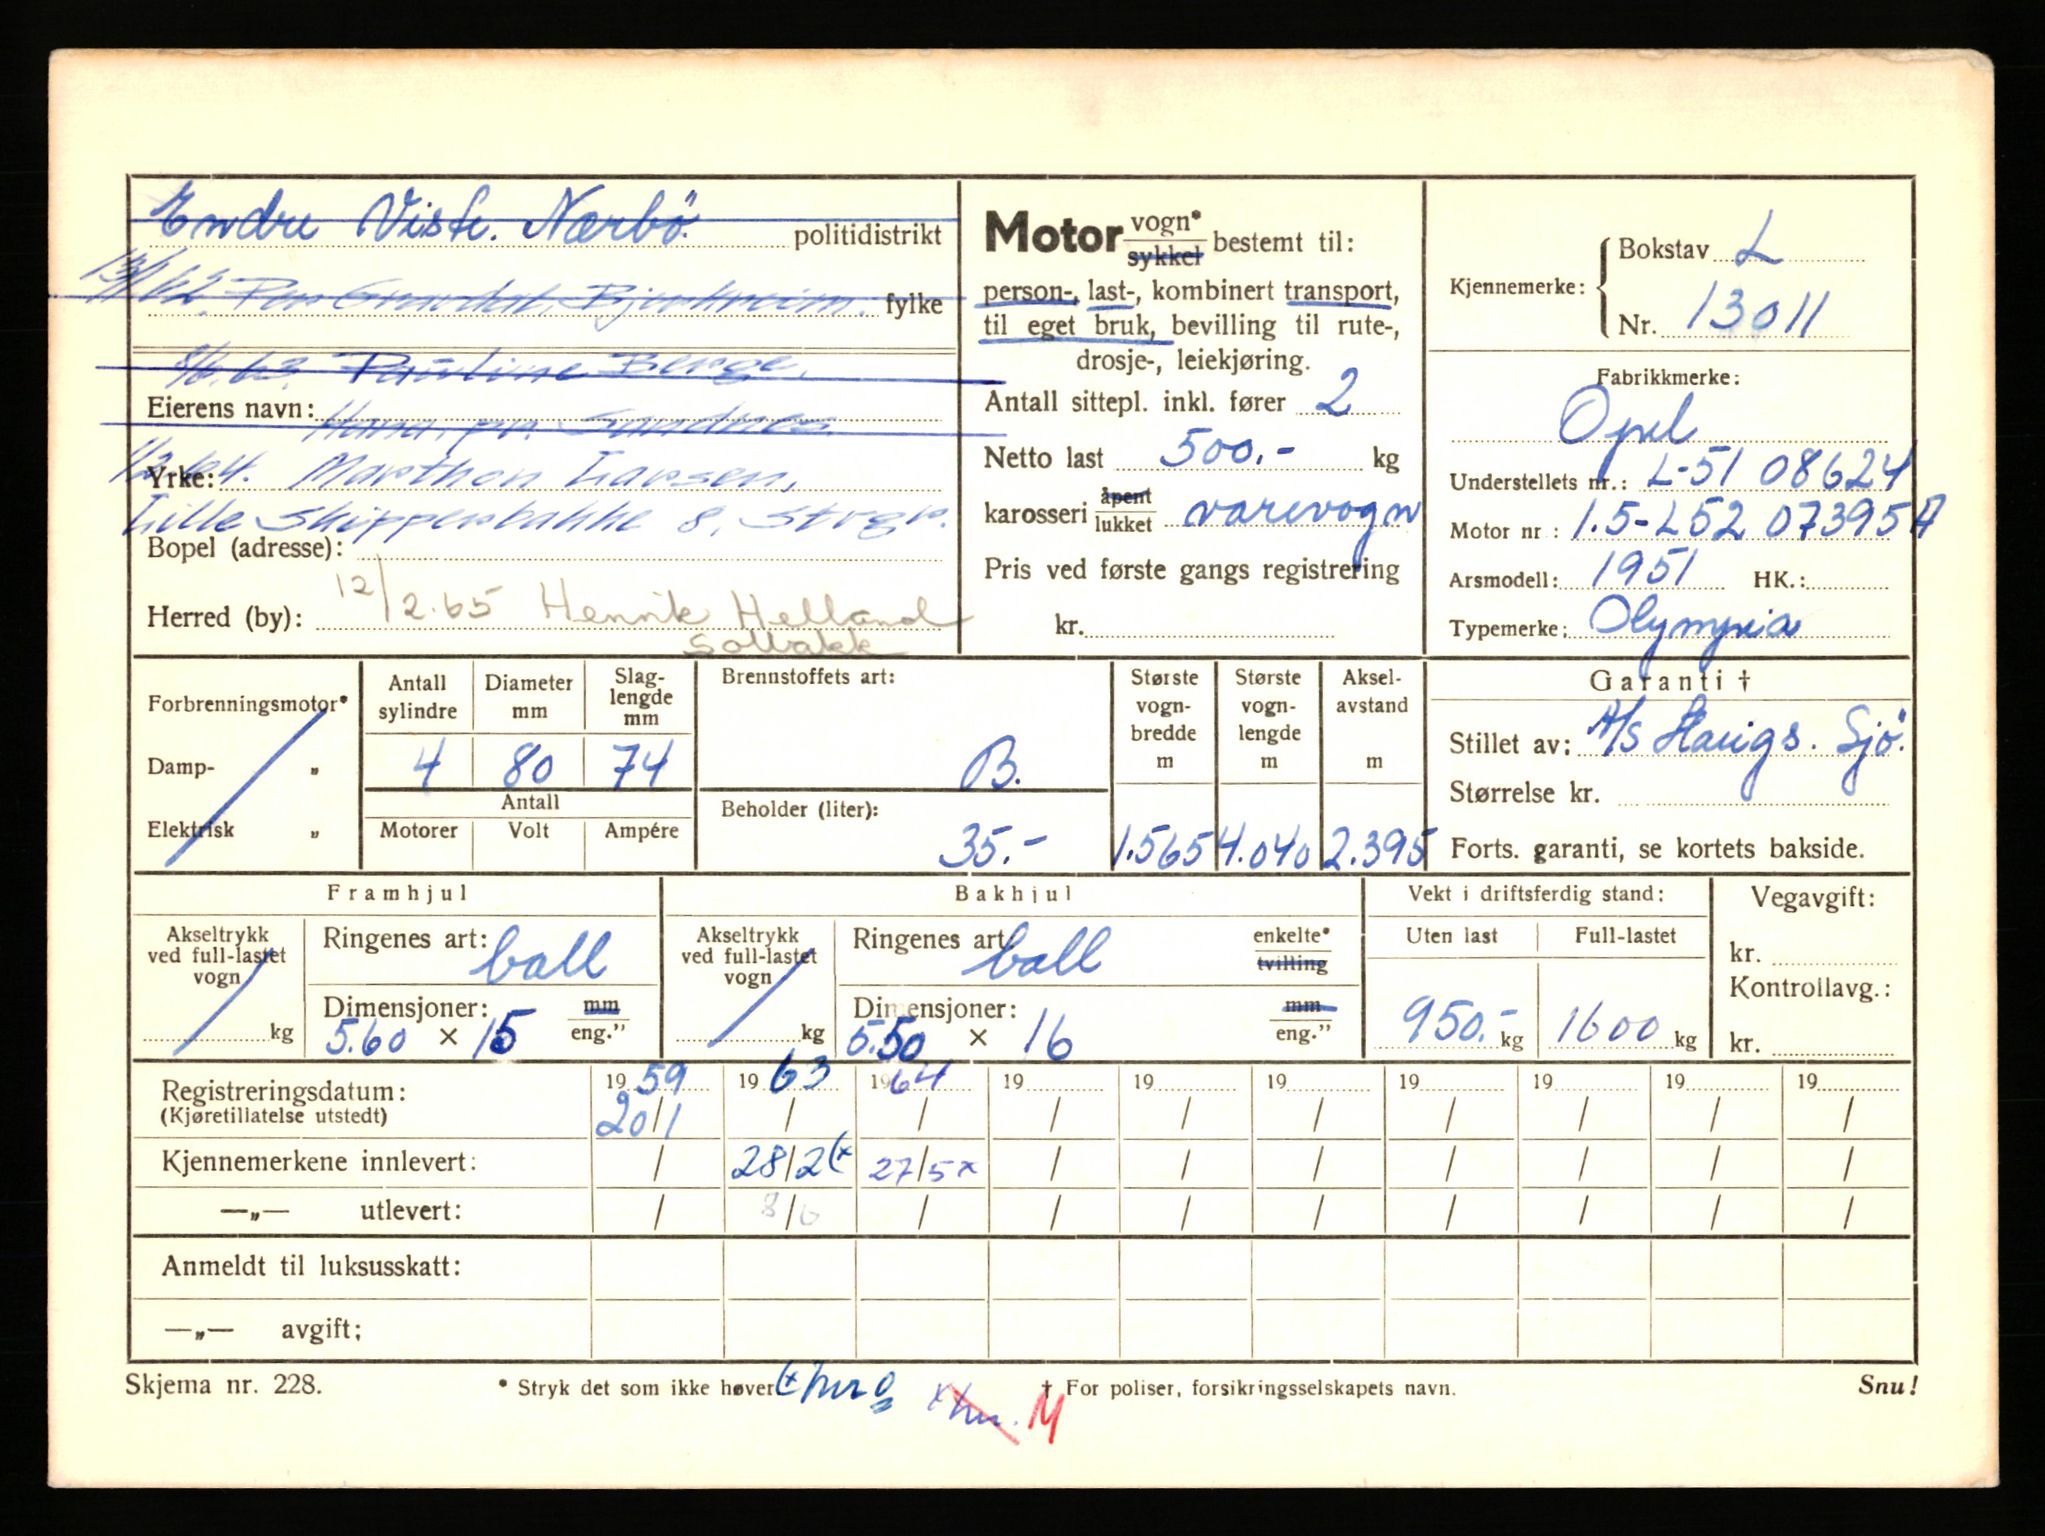 Endre Viste. Nærbö. politidistrikt
fylke
8/6.63. Pauline Berge,
Eierens navn: Hana, pr. Sandnes
1/2.64. Marthon Larsen,
Yrke:
Lille Skippersbakke 8, Stvgr.
Bopel (adresse):
12/2.65 Henrik Helland
Herred (by):
Solbakk
Motor vogn* sykkel bestemt til:
person-, last-, kombinert transport,
til eget bruk, bevilling til rute-,
drosje-, leiekjøring.
Antall sittepl. inkl. fører 2
Netto last 500.- kg
karosseri åpent lukket varevogn
Pris ved første gangs registrering
kr.
Kjennemerke: Bokstav L
Nr. 13011
Fabrikkmerke:
Opel
Understellets nr.: L-51 08624
Motor nr: 1.5-L52 07395A
Arsmodell: 1951 HK.:
Typemerke: Olympia
Garanti †
Stillet av: A/S Haugs. Sjö.
Størrelse kr.
Forts. garanti, se kortets bakside.
Forbrenningsmotor*
Damp- „
Elektrisk „
Antall sylindre Diameter mm Slag-lengde mm
4 80 74
Antall
Motorer Volt Ampére
Brennstoffets art:
B.
Beholder (liter):
35.-
Største vogn-bredde m
1.565
Største vogn-lengde m
4.040
Aksel-avstand m
2.395
Framhjul
Akseltrykk ved full-lastet vogn
kg
Ringenes art: ball
Dimensjoner: mm eng.”
5.60 × 15
Bakhjul
Akseltrykk ved full-lastet vogn
kg
Ringenes art ball enkelte* tvilling
Dimensjoner: mm eng.”
5.50 × 16
Vekt i driftsferdig stand:
Uten last Full-lastet
950.- kg 1600 kg
Vegavgift:
kr.
Kontrollavg.:
kr.
Registreringsdatum: 19 59 19 63 19 64 19 19 19 19 19 19 19
(Kjøretillatelse utstedt) 20/1 / / / / / / / / /
Kjennemerkene innlevert: / 28/2(x 27/5 x / / / / / / /
—„— utlevert: / 8/6 / / / / / / / /
Anmeldt til luksusskatt:
—„— avgift;
Skjema nr. 228. * Stryk det som ikke høver † For poliser, forsikringsselskapets navn. Snu!
M